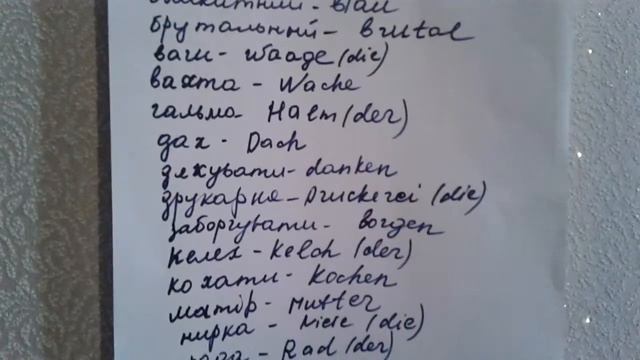 блакитний - blau
брутальний - brutal
ваги - Waage (die)
вахта - Wache
гальма - Halm (der)
дах - Dach
дякувати - danken
друкарня - Druckerei (die)
заборгувати - borgen
келех - Kelch (der)
кохати - kochen
матір - Mutter
нирка - Niere (die)
Rad (der)